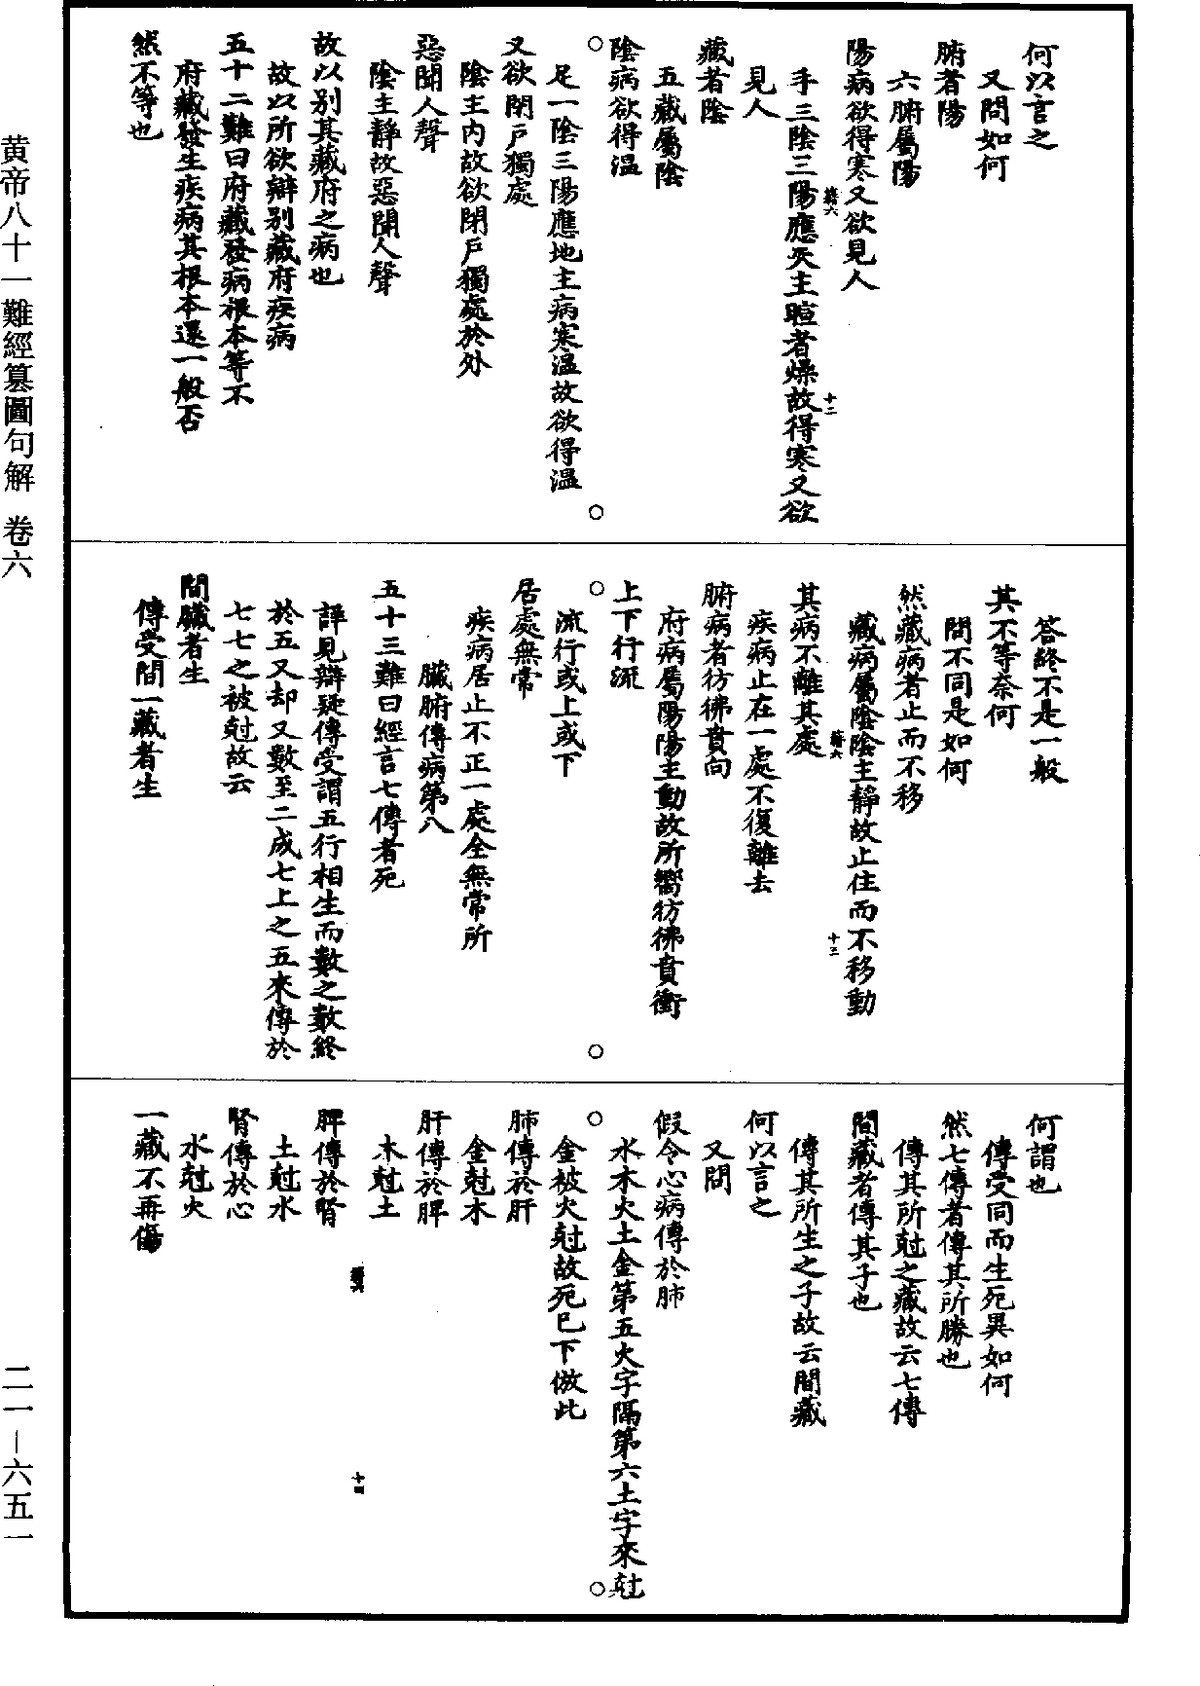 何以言之
又問如何
腑者陽
六腑屬陽
陽病欲得寒又欲見人
籍六
十二
手三陰三陽應天主暄者燥故得寒又欲
見人
藏者陰
五藏屬陰
陰病欲得温
足一陰三陽應地主病寒温故欲得溫
又欲閉戶獨處
陰主内故欲閉戶獨處於外
惡聞人聲
陰主靜故惡聞人聲
故以别其藏府之病也
故以所欲辯别藏府疾病
五十二難曰府藏發病根本等不
府藏發生疾病其根本還一般否
然不等也
答終不是一般
其不等奈何
問不同是如何
然藏病者止而不移
藏病屬陰陰主靜故止住而不移動
籍六
十三
其病不離其處
疾病止在一處不復離去
腑病者彷彿賁向
府病屬陽陽主動故所嚮彷彿賁衝
上下行流
流行或上或下
居處無常
疾病居止不正一處全無常所
臟腑傳病第八
五十三難曰經言七傳者死
詳見辯疑傳受謂五行相生而數之數終
於五又却又數至二成七上之五來傳於
七七之被尅故云
間臟者生
傳受間一藏者生
何謂也
傳受同而生死異如何
然七傳者傳其所勝也
傳其所尅之藏故云七傳
間藏者傳其子也
傳其所生之子故云間藏
何以言之
又問
假令心病傳於肺
水木火土金第五火字隔第六土字來尅
金被火尅故死已下倣此
肺傳於肝
金尅木
肝傳於脾
木尅土
十四
脾傳於腎
土尅水
腎傳於心
水尅火
一藏不再傷
黄帝八十一難經纂圖句解 卷六
二一—六五一